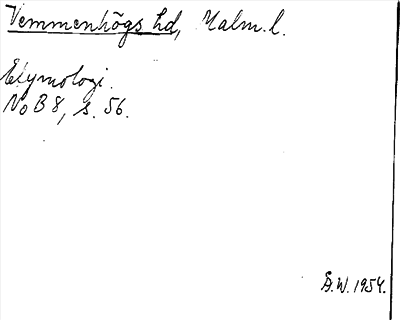 Vemmenhögs hd, Malm. l.
Etymologi.
NoB 8, s. 56.
Å.W. 1954.